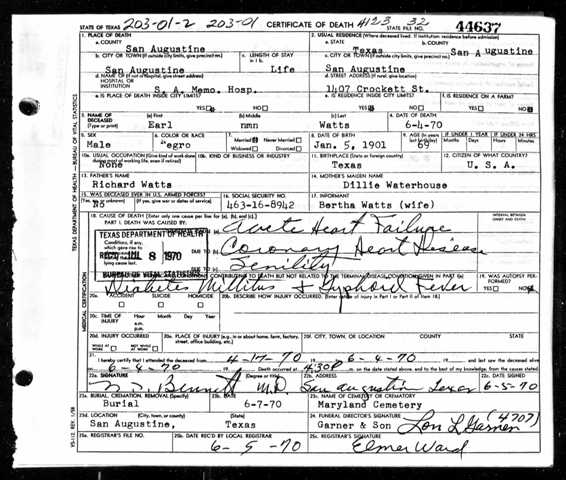 STATE OF TEXAS 203-01-2 203-01 CERTIFICATE OF DEATH 4123 32 STATE FILE NO. 44637
1. PLACE OF DEATH 2. USUAL RESIDENCE (Where deceased lived. If institution: residence before admission)
a. COUNTY a. STATE b. COUNTY
San Augustine Texas San Augustine
b. CITY OR TOWN (If outside city limits, give precinct no.) c. LENGTH OF STAY in 1 b. c. CITY OR TOWN (If outside city limits, give precinct no.)
San Augustine Life San Augustine
d. NAME OF (If not in hospital, give street address) HOSPITAL OR INSTITUTION d. STREET ADDRESS (If rural, give location)
S. A. Memo. Hosp. 1407 Crockett St.
e. IS PLACE OF DEATH INSIDE CITY LIMITS? e. IS RESIDENCE INSIDE CITY LIMITS? f. IS RESIDENCE ON A FARM?
YES NO YES NO YES NO
3. NAME OF DECEASED (Type or print) (a) First (b) Middle (c) Last 4. DATE OF DEATH
Earl nmn Watts 6-4-70
5. SEX 6. COLOR OR RACE 7. Married Never Married Widowed Divorced 8. DATE OF BIRTH 9. AGE (In years last birthday) IF UNDER 1 YEAR IF UNDER 24 HRS.
Male egro Jan. 5, 1901 69
10a. USUAL OCCUPATION (Give kind of work done during most of working life, even if retired) 10b. KIND OF BUSINESS OR INDUSTRY 11. BIRTHPLACE (State or foreign country) 12. CITIZEN OF WHAT COUNTRY?
None Texas U. S. A.
13. FATHER'S NAME 14. MOTHER'S MAIDEN NAME
Richard Watts Dillie Waterhouse
15. WAS DECEASED EVER IN U.S. ARMED FORCES? 16. SOCIAL SECURITY NO. 17. INFORMANT
(Yes, no, or unknown) (If yes, give war or dates of service)
No 463-16-8942 Bertha Watts (wife)
18. CAUSE OF DEATH [Enter only one cause per line for (a), (b), and (c).] INTERVAL BETWEEN ONSET AND DEATH
PART I. DEATH WAS CAUSED BY:
Acute Heart Failure
TEXAS DEPARTMENT OF HEALTH
Conditions, if any, which gave rise to
Coronary Heart Disease
REC'D JUL 8 1970
DUE TO
Senility
lying cause last.
BUREAU OF VITAL STATISTICS
CONTRIBUTING TO DEATH BUT NOT RELATED TO THE TERMINAL DISEASE CONDITION GIVEN IN PART I(a) 19. WAS AUTOPSY PERFORMED?
Diabetes Millitus + Typhord Fever YES NO
20a. ACCIDENT SUICIDE HOMICIDE 20b. DESCRIBE HOW INJURY OCCURRED. (Enter nature of injury in Part I or Part II of item 18.)
20c. TIME OF INJURY Hour Month Day Year
a.m.
p.m.
20d. INJURY OCCURRED 20e. PLACE OF INJURY (e.g., in or about home, farm, factory, street, office building, etc.) 20f. CITY, TOWN, OR LOCATION COUNTY STATE
WHILE AT WORK NOT WHILE AT WORK
21. I hereby certify that I attended the deceased from 4-17-70 19 to 6-4-70 19 and last saw the deceased alive
on 6-4-70 19 Death occurred at 4:30P m. on the date stated above, and to the best of my knowledge, from the causes stated.
22a. SIGNATURE (Degree or title) 22b. ADDRESS 22c. DATE SIGNED
Bennett M.D. San Augustine Texas 6-5-70
23a. BURIAL, CREMATION, REMOVAL (Specify) 23b. DATE 23c. NAME OF CEMETERY OR CREMATORY
Burial 6-7-70 Maryland Cemetery
23d. LOCATION (City, town, or county) (State) 24. FUNERAL DIRECTOR'S SIGNATURE
San Augustine, Texas Garner & Son Lon L Garner (4707)
25a. REGISTRAR'S FILE NO. 25b. DATE REC'D BY LOCAL REGISTRAR 25c. REGISTRAR'S SIGNATURE
6-5-70 Elmer Ward
TEXAS DEPARTMENT OF HEALTH — BUREAU OF VITAL STATISTICS
MEDICAL CERTIFICATION
VS-112 REV. 1/58